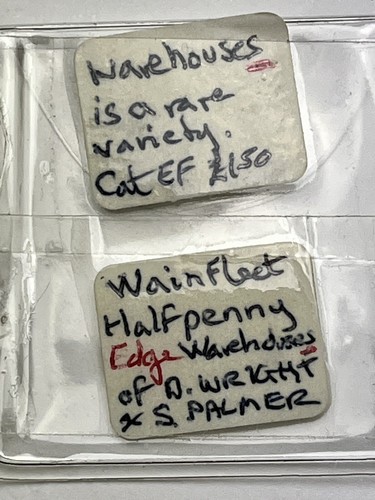 Warehouses
is a rare
variety.
Cat EF £150
Wainfleet
Halfpenny
Edge Warehouses
of D. WRIGHT
& S. PALMER